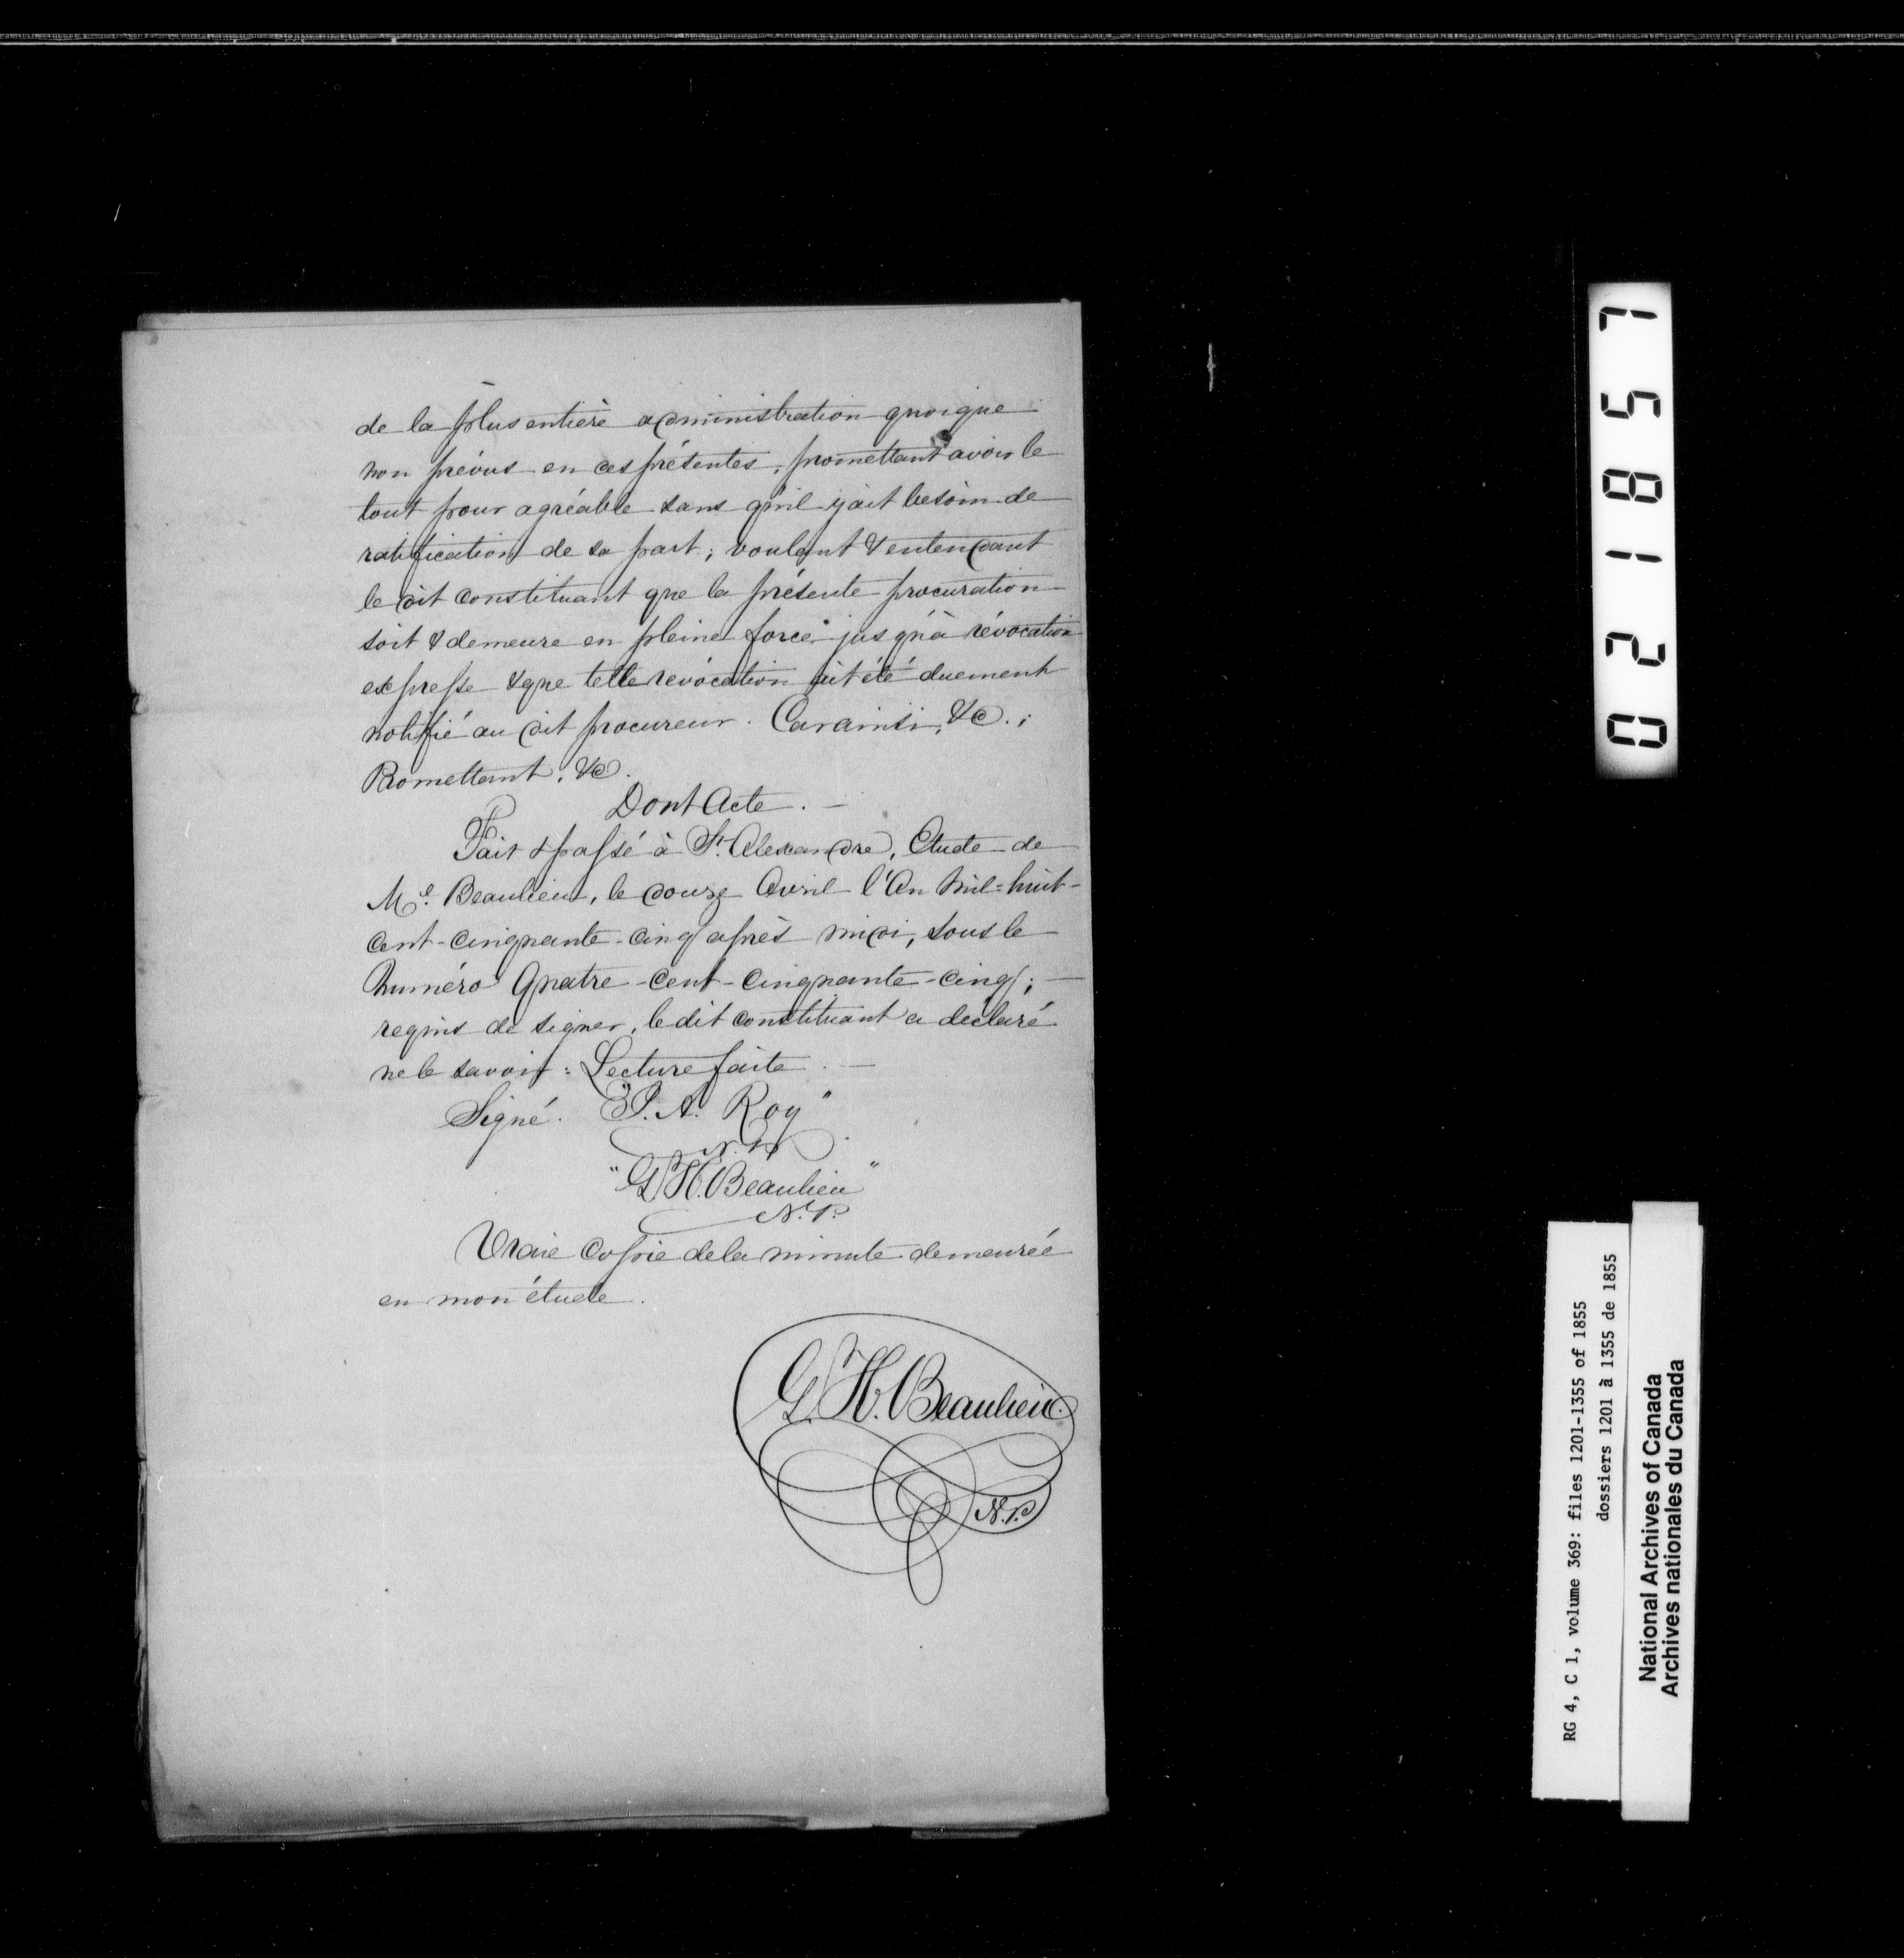 de la plus entière administration quoique
non prévus en ces présentes, promettant avoir le
tout pour agréable sans qu'il y ait besoin de
ratification de sa part; voulant & entendant
le dit constituant que la présente procuration
soit & demeure en pleine force jusqu'à révocation
expresse & que telle révocation ait été duement
notifié au dit procureur. Car ainsi, &c.;
Promettant, &c.
Dont Acte. —
Fait & passé à St. Alexandre, Etude de
Me. Beaulieu, le douze Avril l'An Mil-huit-
cent-cinquante-cinq après midi, sous le
Numéro Quatre-cent-cinquante-cinq; —
requis de signer, le dit constituant a déclaré
ne le savoir: Lecture faite. —
Signé. "P. A. Roy"
N.P.
"G. H. Beaulieu"
N.P.
Vraie Copie de la minute demeurée
en mon étude.
G. H. Beaulieu.
N.P.
021857
RG 4, C 1, volume 369: files 1201-1355 of 1855
dossiers 1201 à 1355 de 1855
National Archives of Canada
Archives nationales du Canada